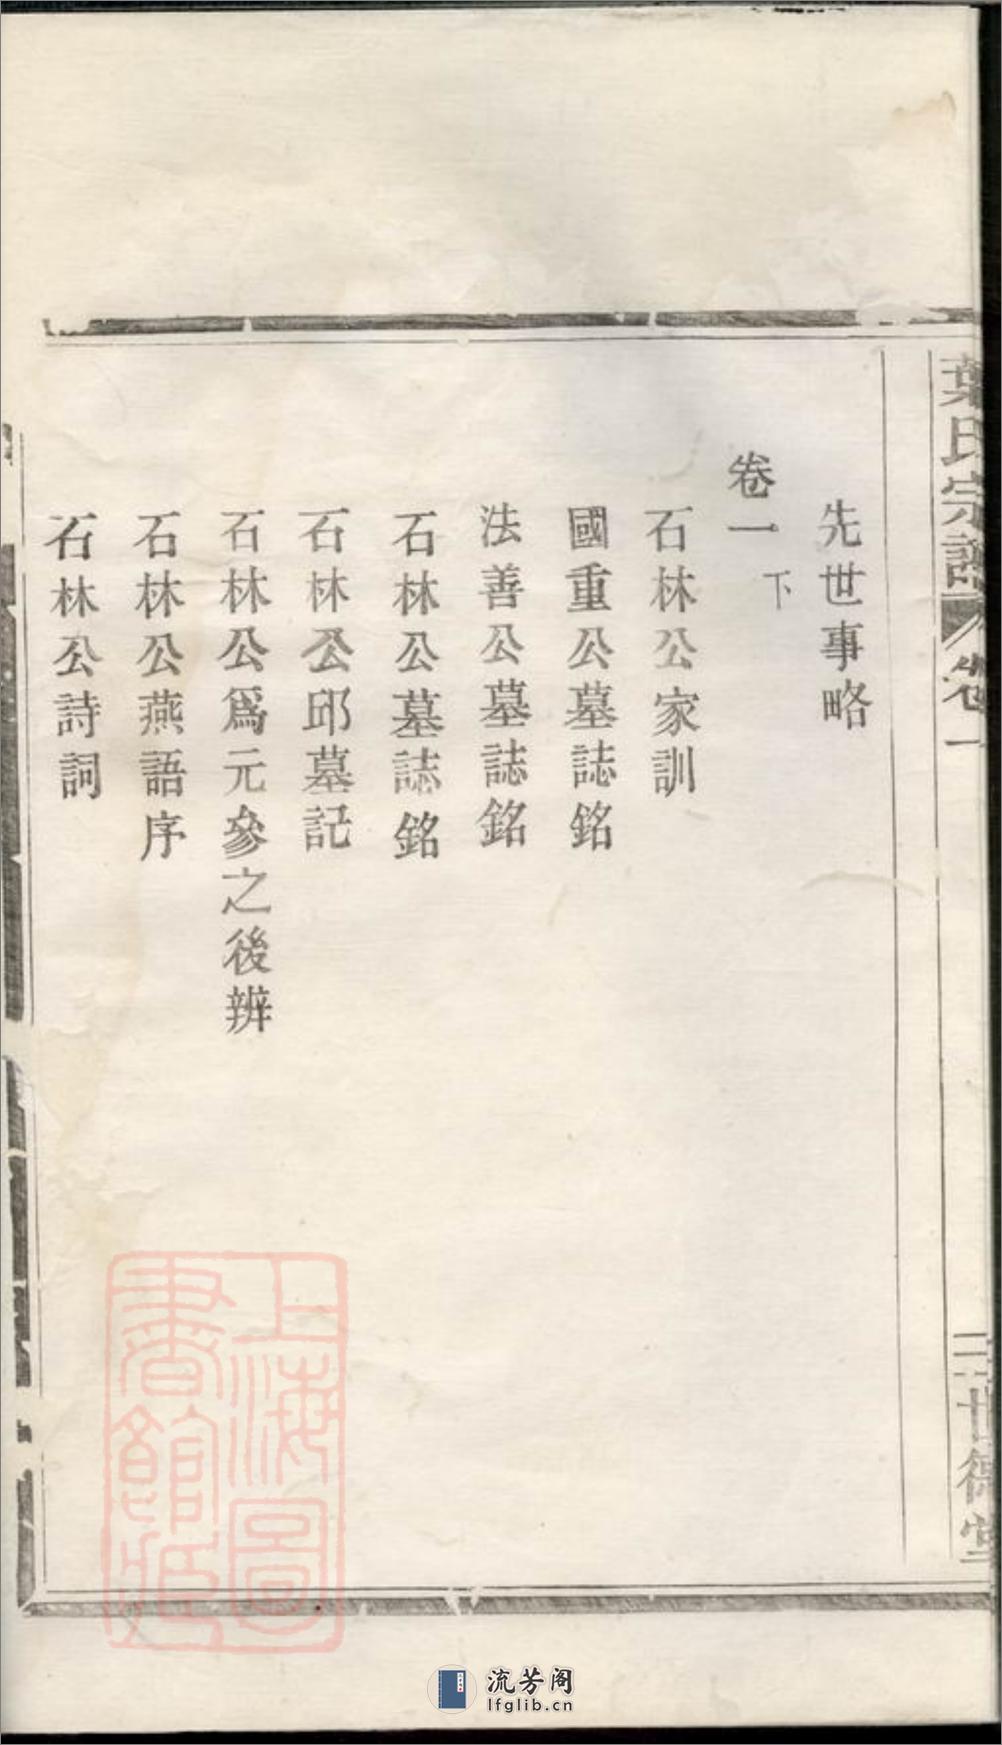 葉氏宗譜 卷一
二 世德堂
先世事略
卷一下
石林公家訓
國重公墓誌銘
法善公墓誌銘
石林公墓誌銘
石林公邱墓記
石林公爲元參之後辨
石林公燕語序
石林公詩詞
上海圖書館藏
流芳阁
lfglib.cn